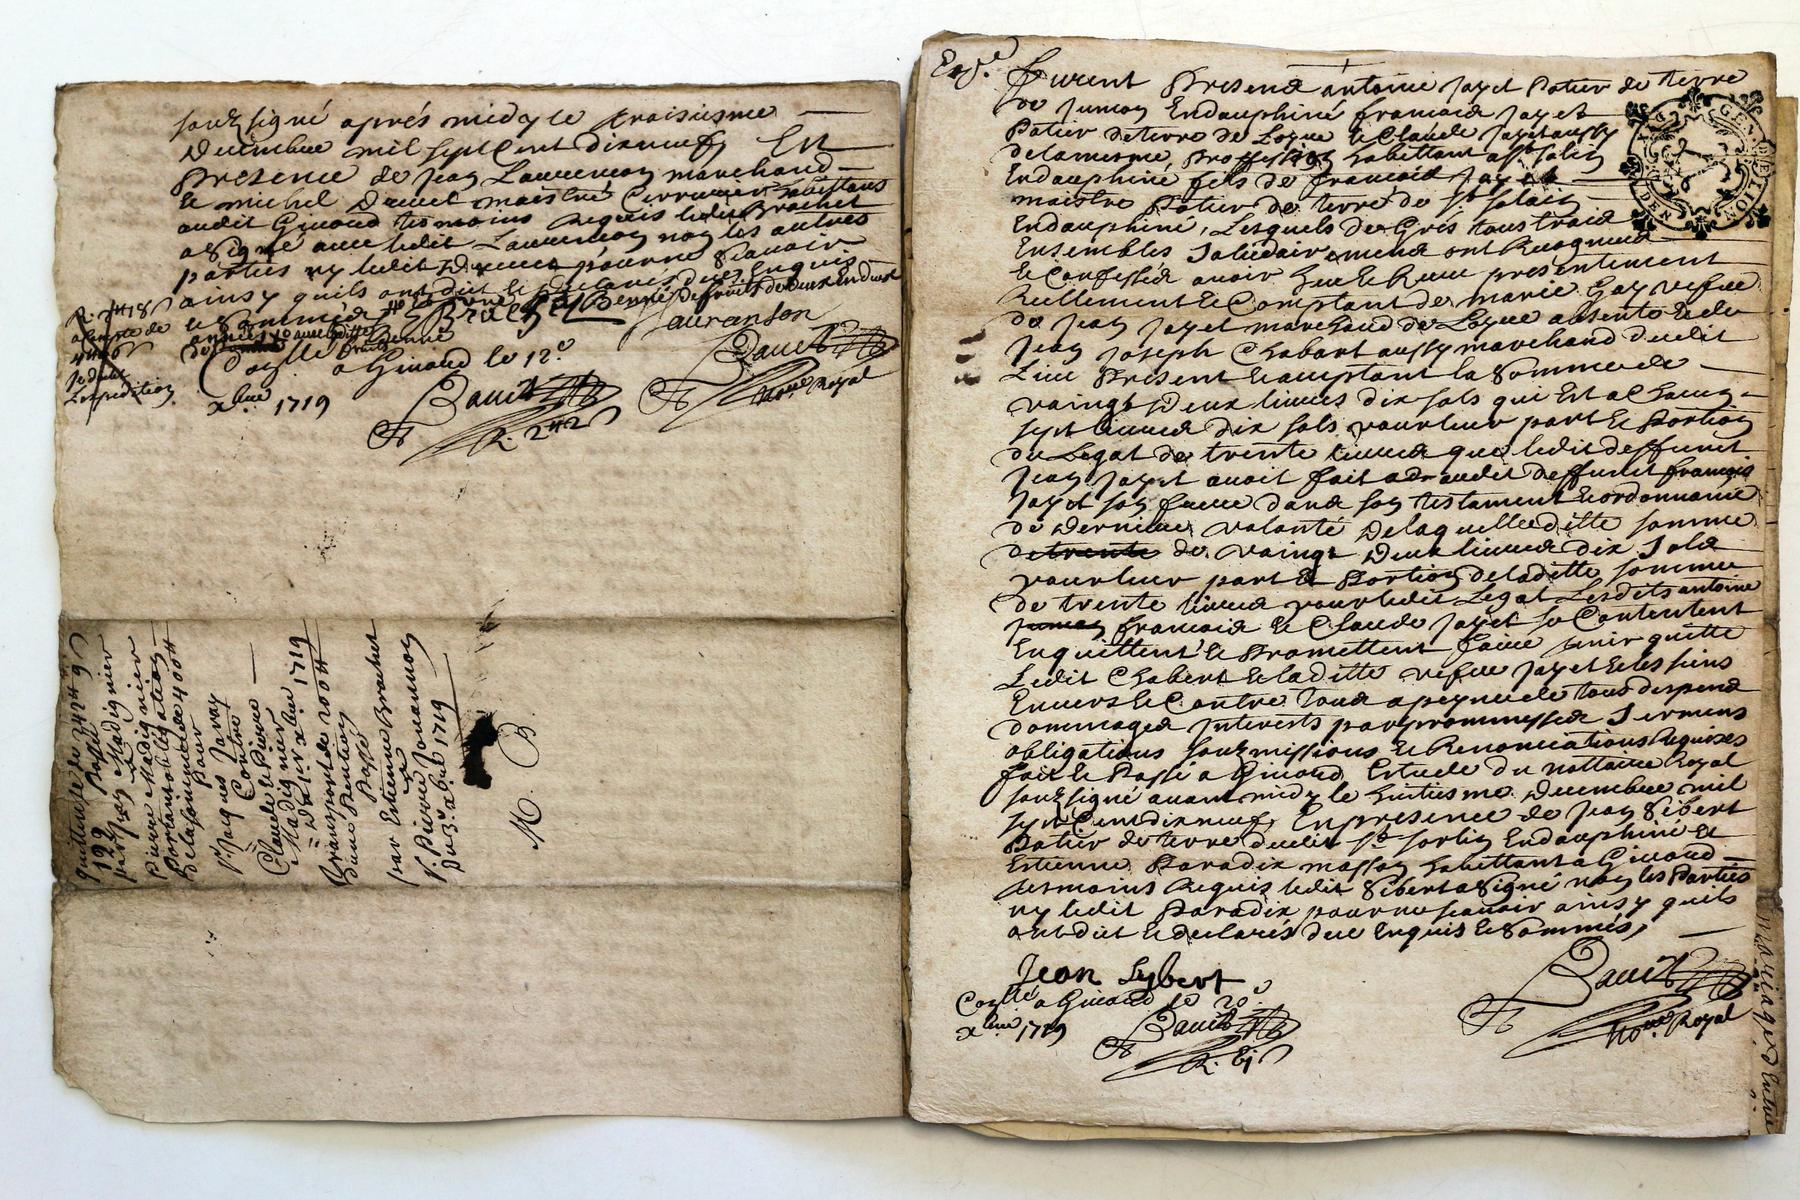 souzsigné aprés midy le troisiesme
Decembre mil sept Cent dixneufz En
presence de Jean Laurenson marchand
et michel Drevet maistre Serrurier habittans
audit Givord tesmoins requis ledit Brachet
a signé avec ledit Laurenson non les autres
parties ny ledit Drevet pour ne scavoir
ainsy quils ont dit et declaré de ce enquis
et sommés
Brachet
Lauranson
Bauet
No.re Royal
Con.llé a Givord le 12.e
xbre 1719
Bauet
R. 2₶ 2 s
quittense de
1719
par Jean Madignier
a
Pierre Madignier
Portant obligation
de la somme de 400₶
Pour
S.r Jacques Javay
Contre
Claude et Pierre
Madignier
Du 1.er xbre 1719
Transport de 200₶
Dune Pention
Passé
par Estienne Brachet
a
S.r Pierre Jouannon
Du 3.e xbre 1719
M. B.
Exp.e
Furent Presend antoine Jayet Potier de terre
de Jumon Endauphiné francois Jayet
Potier de terre de Loyue et Claude Jayet aussy
de la mesme proffession habittant a St Salin
Endauphiné fils de francois Jayet
maistre Potier de terre de St Salain
Endauphiné, Lesquels de Grés tous trois
Ensembles Solidairement ont Recogneu
et Confessé avoir heu et Receu présentement
Reellement et Comptant de marie Gay vefue
de Jean Jayet marchand de Loyue absente et de
Jean Joseph Chabert aussy marchand dudit
Lieu Present et acceptant la Somme de
vaingt Deux livres dix sols qui Est a Chacun
sept livres dix sols pour leur part et Portion
du Legat de trente livres que ledit deffunt
Jean Jayet avoit fait audit deffunt francois
Jayet son frere dans son testament et ordonnance
de Derniere volonté De laquelle ditte somme
de trente de vaingt Deux livres dix Sols
pour leur part et Portion de laditte somme
de trente livres pour ledit Legat Lesdits antoine
Jumon francois et Claude Jayet se Contentent
En quittent et Promettent faire tenir quitte
Ledit Chabert et laditte vefue Jayet et les siens
Envers et Contre Tous a peyne de tous despens
Dommages Interests par prommesses Serment
obligations souzmissions et Renonciations Requises
fait et Passé a Givord Estude du nottaire Royal
souzsigné avant midy le huitiesme Decembre mil
sept Cent dixneuf En presence de Jean Sibert
Potier de terre dudit St Sorlin Endauphiné et
Estienne Paradix masson habittant a Givord
tesmoins Requis ledit Sibert a Signé non les Parties
ny ledit Paradix pour ne scavoir ainsy quils
ont dit et declarés de ce Enquis et Sommés,
Jean Sybert
Con.llé a Givord le 20.e
xbre 1719
Bauet
Bauet
No.re Royal
GEN DE LION
mariage Entre